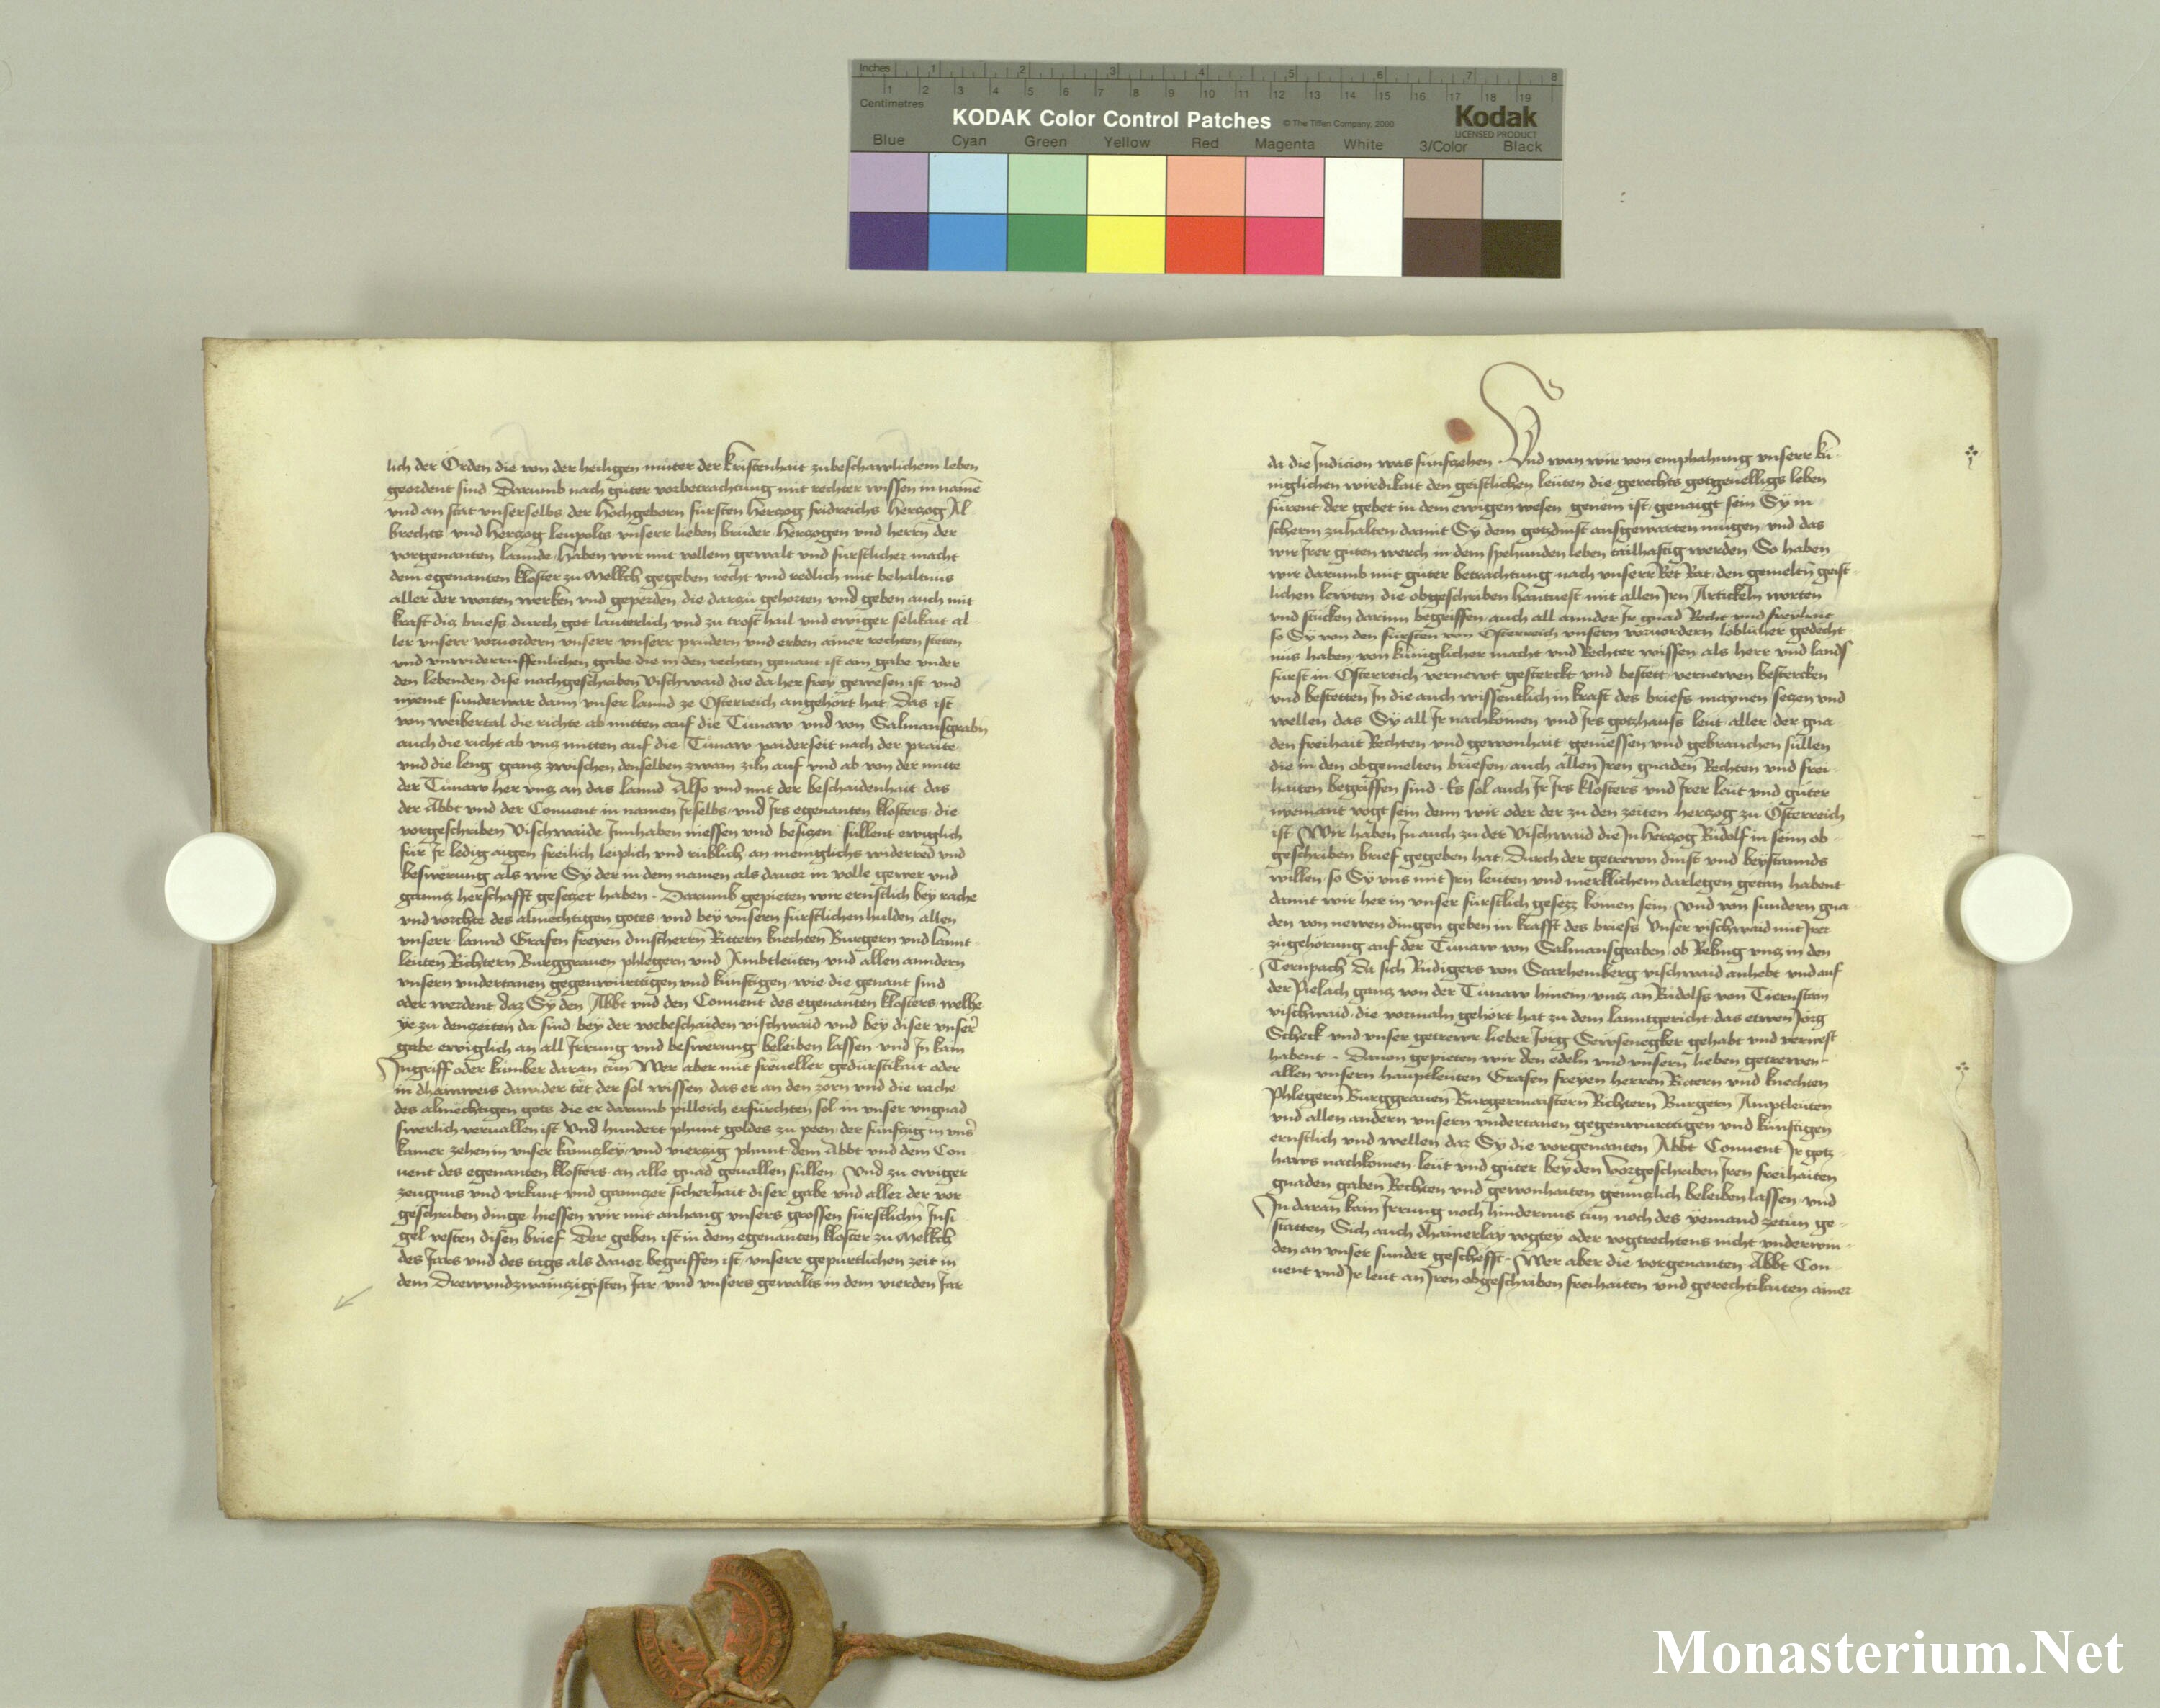 Inches 1 2 3 4 5 6 7 8
Centimetres 1 2 3 4 5 6 7 8 9 10 11 12 13 14 15 16 17 18 19
KODAK Color Control Patches © The Tiffen Company, 2000 Kodak
LICENSED PRODUCT
Blue Cyan Green Yellow Red Magenta White 3/Color Black
lich der Orden die von der heiligen muter der kristenhait zubeschawlichem leben
geordent sind Darumb nach guter vorbetrachtung mit rechter wissen in name
und an stat unserselbs der hochgeborn fursten herczog fridreichs herczog Al
brechts und herczog leupolts unserr lieben bruder herczogen und herrn der
vorgenanten lannde haben wir mit vollem gewalt und furstlicher macht
dem egenanten kloster zu Mellch gegeben recht und redlich mit behaltnus
aller der worten werken und geperden die darczu gehorten und geben auch mit
kraft dicz briefs durch got lauterlich und zu trost hail und ewiger selikait al
ler unserr voruordern unserr unserr prudern und erben ainer rechten steten
und unwiderruffenlichen gabe die in den rechten genant ist ain gabe under
den lebenden dise nachgeschriben vischwaid die da her frey gewesen ist und
nyemt sunderwar dann unser lannd ze Osterreich angehort hat Das ist
von weibertal die richte ab mitten auf die Tunaw und von Salmansgrabn
auch die richt ab uncz mitten auf die Tunaw paiderseit nach der praite
und die leng gancz zwischen denselben zwain ziln auf und ab von der mitte
der Tunaw her uncz an das lannd Also und mit der beschaidenhait das
der Abbt und der Conuent in namen Irselbs und Irs egenanten klosters die
vorgeschriben vischwaide Innhaben niessen und besiczen sullent ewiglich
fur Ir ledig aigen freilich leiplich und rublich an meniglichs widerred und
beswerung als wir Sy der in dem namen als dauor in volle gewer und
gancz herschafft geseczet haben Darumb gepieten wir ernstlich bey rache
und vorchte des almechtigen gotes und bey unsern furstlichen hulden allen
unserr lannd Grafen freyen dinstherrn Rittern knechten Burgern und lannt
leuten Richtern Burggrauen phlegern und Ambtleuten und allen anndern
unsern undertanen gegenwurttigen und kunftigen wie die genant sind
oder werdent daz Sy den Abbt und den Conuent des egenanten klosters welhe
ye zu denczeiten da sind bey der vorbeschaiden vischwaid und bey diser unser
gabe ewiglich an all Irrung und beswerung beleiben lassen und In kain
Ingriff oder kumber daran tun Wer aber mit freueller gedurstikait oder
in dhainweis dawider tet der sol wissen das er an den zorn und die rache
des almechtigen gots die er darumb pilleich erfurchten sol in unser ungnad
swerlich veruallen ist Und hundert phunt goldes zu peen der funfczig in uns
kamer zehen in unser kannczley und vierczig phunt dem Abbt und dem Con
uent des egenanten klosters an alle gnad geuallen sullen Und zu ewiger
zeugnus und urkunt und ganczer sicherhait diser gabe und aller der vor
geschriben dinge hiessen wir mit anhang unsers grossen furstlichn Insi
gel vesten disen brief Der geben ist in dem egenanten kloster zu Mellch
des Jars und des tags als dauor begriffen ist unserr gepurtlichen zeit in
dem Drewundzwainczigisten Jar und unsers gewalts in dem vierden Jar
da die Indicion was funfczehen Und wan wir von emphahung unserr ku
niglichen wirdikait den geistlichen leuten die gerechts gotgeuelligs leben
furent der gebet in dem ewigen wesen genem ist genaigt sein Sy in
scherm zuhalten damit Sy dem gotzdinst ausgewarten mugen und das
wir Irer guten werch in dem spehunden leben tailhaftig werden So haben
wir darumb mit guter betrachtung nach unserr Ret Rat den gemeltn geist
lichen lewten die obgeschriben hantuest mit allen Irn Artickeln worten
und stucken darinn begriffen auch all annder Ir gnad Recht und freyhait
so Sy von den fursten von Osterreich unsern voruordern loblicher gedecht
nus haben von kuniglicher macht und Rechter wissen als herr und lands
furst in Osterreich vernewt gesterckt und bestett vernewen bestercken
und bestetten In die auch wissentlich in kraft des briefs maynen seczen und
wellen das Sy all Ir nachkomen und Irs gotzhauss leut aller der gna
den freihait Rechten und gewonhait geniessen und gebrauchen sullen
die in den obgemelten briefen auch allen Iren gnaden Rechten und frei
haiten begriffen sind Es sol auch Ir Irs klosters und Irer leut und guter
nyemant vogt sein denn wir oder der zu den zeiten herczog zu Osterreich
ist Wir haben In auch zu der vischwaid die In herczog Rudolf in seinn ob
geschriben brief gegeben hat Durch der getrewn dinst und beystannds
willen so Sy uns mit Irn leuten und merklichem darlegen getan habent
damit wir her in unser furstlich gesezz komen sein Und von sundern gna
den von newen dingen geben in krafft des briefs Unser vischwaid mit Irer
zugehorung auf der Tunaw von Salmansgraben ob Reking uncz in den
Ternpach Da sich Rudigers von Starhemberg vischwaid anhebt und auf
der Pielach gancz von der Tunaw hinein uncz an Rudolfs von Tiernstain
vischwaid die vormaln gehort hat zu dem lanntgericht das etwen Jorg
Scheck und unser getrewr lieber Jorg Sewsenegker gehabt und verwest
habent Dauon gepieten wir den edeln und unsern lieben getrewen
allen unsern hauptleuten Grafen freyen herren Rittern und knechten
Phlegern Burggrauen Burgermaistern Richtern Burgern Amptleuten
und allen andern unsern undertanen gegenwurttigen und kunftigen
ernstlich und wellen daz Sy die vorgenanten Abbt Conuent Ir gotz
haws nachkomen leut und guter bey den vorgeschriben Iren freihaiten
gnaden gaben Rechten und gewonhaiten genczlich beleiben lassen und
In daran kain Irrung noch hindernus tun noch des yemand zetun ge
statten Sich auch dhainerlay vogtey oder vogtrechtens nicht underwin
den an unser sunder geschefft Wer aber die vorgenanten Abbt Con
uent und Ir leut an Iren obgeschriben freihaiten und gerechtikaiten ainer
Monasterium.Net